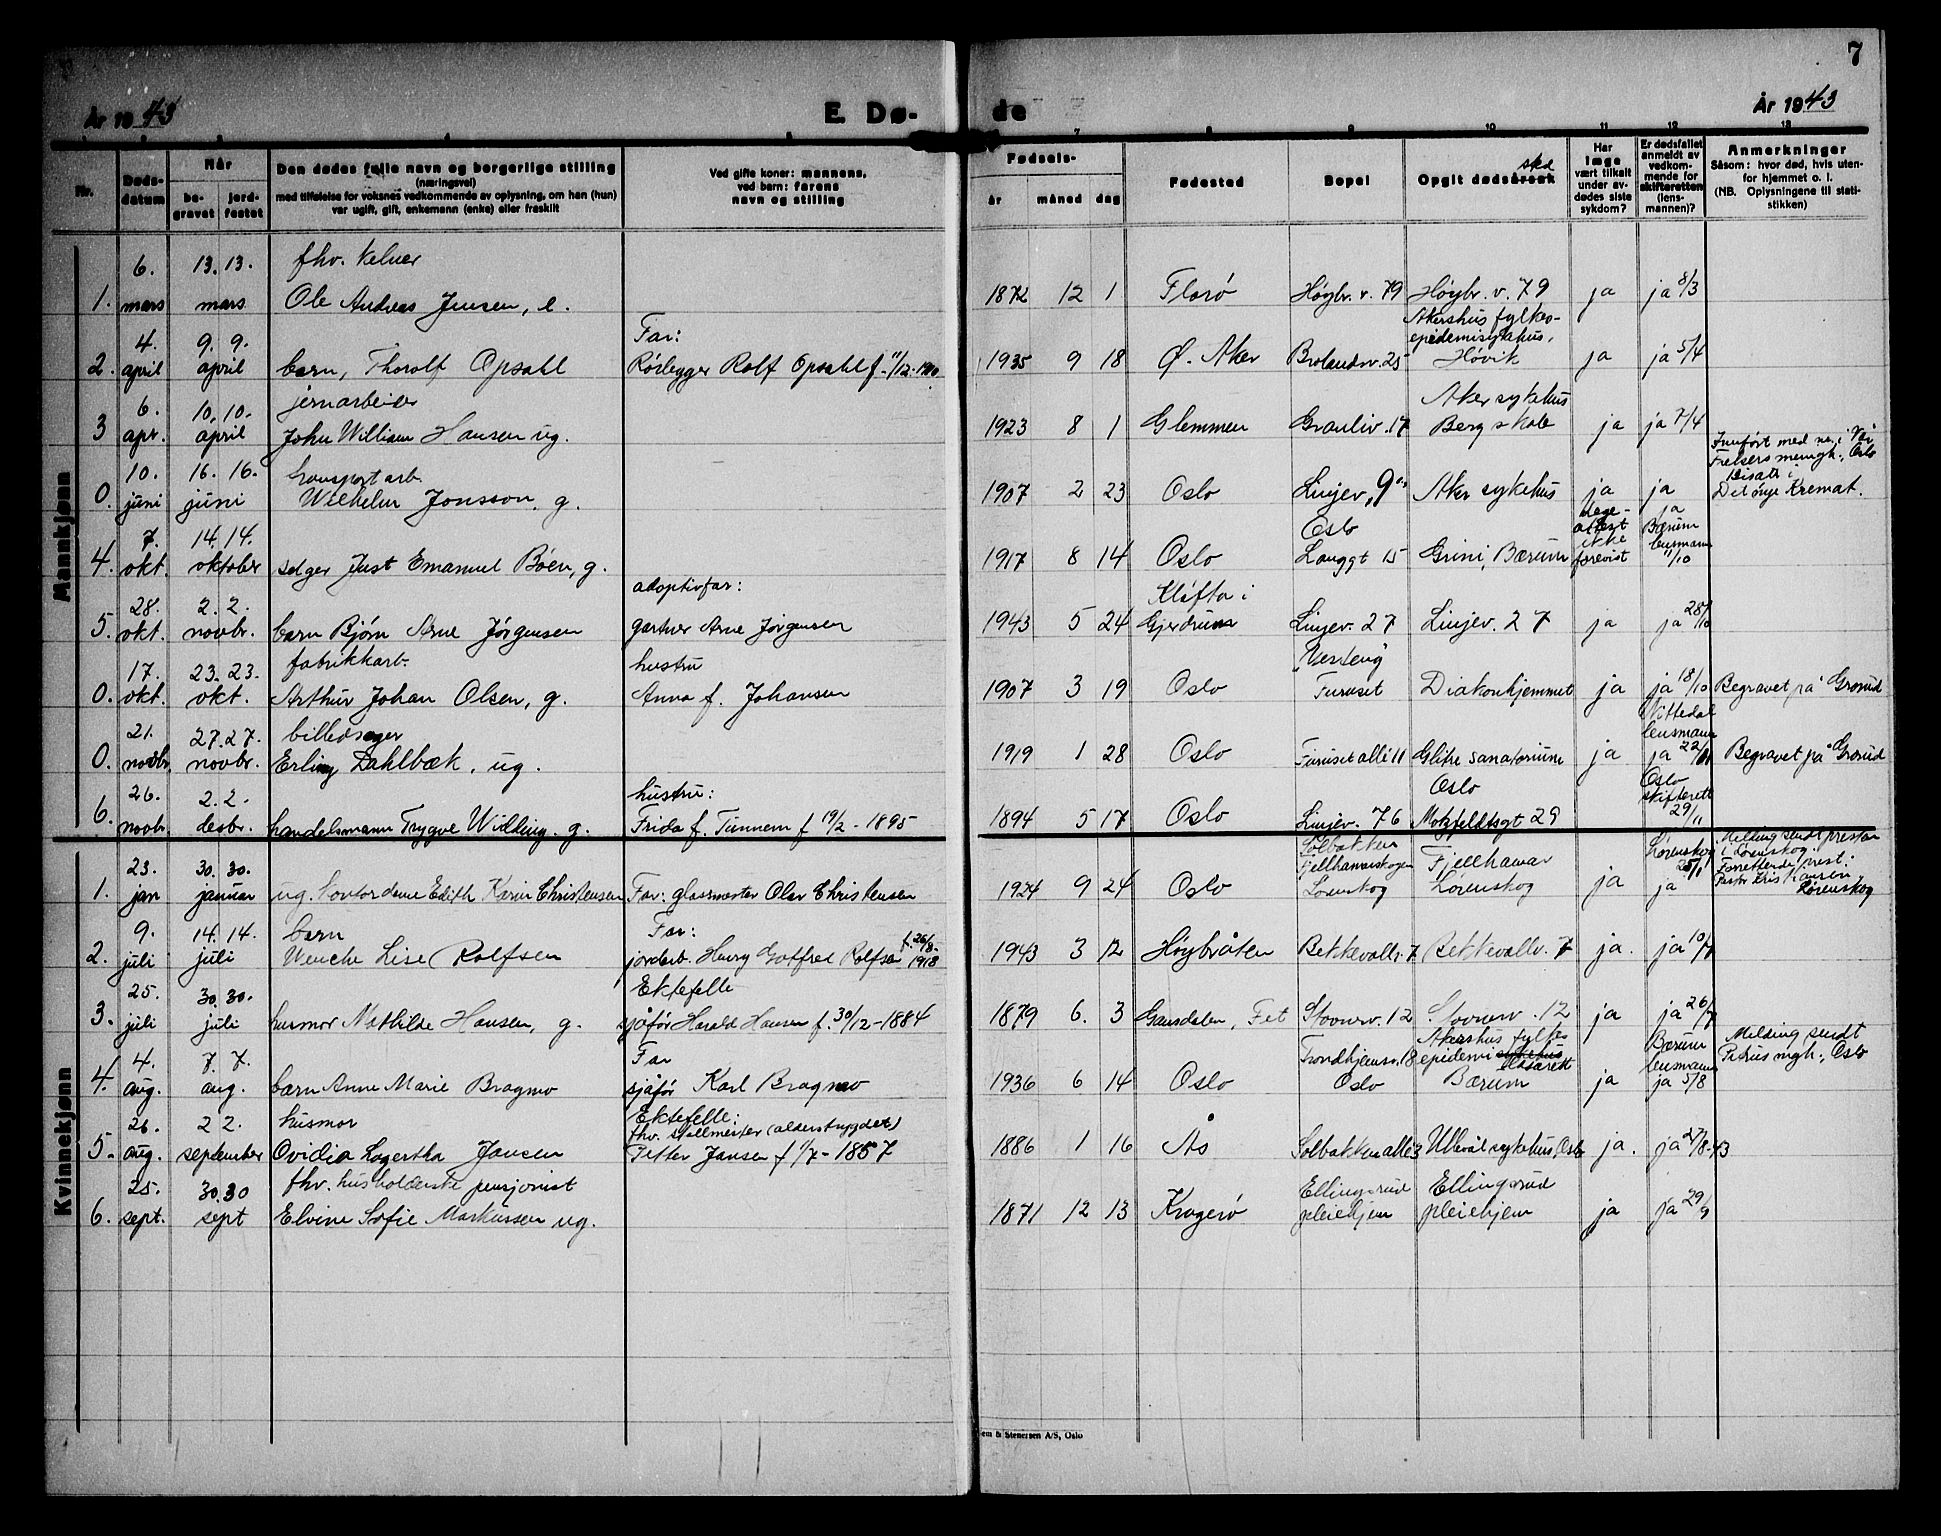 7
År 1943 E. Dø- de År 1943
7 8 9 10 11 12 13
Nr. | Døds-datum | Når be-gravet | jord-festet | Den dødes fulle navn og borgerlige stilling (næringsvei) med tilføielse for voksnes vedkommende av oplysning, om han (hun) var ugift, gift, enkemann (enke) eller fraskilt | Ved gifte koner: mannens, ved barn: farens navn og stilling | Fødsels- år | måned | dag | Fødested | Bopel | Opgit dødsårsak sted | Har læge vært tilkalt under av-dødes siste sykdom? | Er dødsfallet anmeldt av vedkom-mende for skifteretten (lens-mannen)? | Anmerkninger Såsom: hvor død, hvis uten-for hjemmet o. l. (NB. Oplysningene til stati-stikken)
Mannkjønn
1. | 6. mars | 13. 13. mars | fhv. kelner Ole Andreas Jensen, e. | 1872 | 12 | 1 | Florø | Høybr. v. 79 | Høybr. v. 79 | ja | ja 8/3
2. | 4. april | 9. 9. april | barn, Thorolf Opsahl | Far: Rørlegger Rolf Opsahl f. | 1935 | 9 | 18 | Ø. Aker | Brolandsv. 25 | Akershus fylkes-epidemisykehus, Høvik | ja | ja 5/4
3 | 6. apr. | 10. 10. april | jernarbeider John William Hansen ug. | 1923 | 8 | 1 | Glemmen | Granliv. 17 | Aker sykehus Berg skole | ja | ja 7/4
0. | 10. juni | 16. 16. juni | transportarb. Wilhelm Jonsson, g. | 1907 | 2 | 23 | Oslo | Linjev, 9 | Aker sykehus | ja | ja | Innført med nr. i Vår Frelsers menigh., Oslo Bisatt i Det nye Kremat.
4. | 7. okt. | 14. 14. oktober | selger Just Emanuel Bøen, g. | 1917 | 8 | 14 | Oslo | Oslo Langgt 15 | Grini, Bærum | lege-attest ikke forevist | ja Bærum lensmann 11/10
5. | 28. okt. | 2. 2. novbr. | barn Bjørn Arne Jørgensen | adoptivfar: gartner Arne Jørgensen | 1943 | 5 | 24 | Kløfta i Gjerdrum | Linjev. 27 | Linjev. 27 | ja | ja 28/10
0. | 17. okt. | 23. 23. okt. | fabrikkarb. Arthur Johan Olsen, g. | hustru Anna f. Johansen | 1907 | 3 | 19 | Oslo | "Vesteng" Furuset | Diakonhjemmet | ja | ja 18/10 | Begravet på Grorud
0. | 21. novbr. | 27. 27. novbr. | Erling Dahlbæk, ug. | 1919 | 1 | 28 | Oslo | Furuset alle 11 | Glitre sanatorium | ja | Nittedal lensmann ja 22/11 | Begravet på Grorud
6. | 26. novbr. | 2. 2. desbr. | handelsmann Trygve Widding. g. | hustru: Frida f. Tinnem f 19/2 - 1895 | 1894 | 5 | 17 | Oslo | Linjev. 76 | Oslo Motzfeldtsgt 29 | Oslo skifterett 29/11
Kvinnekjønn
1. | 23. jan | 30. 30. januar | ug. kontordame Edith Karin Christensen | Far: glassmester Olav Christensen | 1924 | 9 | 24 | Oslo | Solbakken Fjellhamarskogen Lørenskog | Fjellhamar Lørenskog | ja | Lørenskog 25/1 ja | Melding sendt presten i Lørenskog. Forrettende prest: Lørenskog
2. | 9. juli | 14. 14. juli | barn Wenche Lise Rolfsen | Far: jordarb. Henry Gotfred Rolfsen f. 26/8-1918 | 1943 | 3 | 12 | Høybråten | Bekkevollv. 7 | Bekkevollv. 7 | ja. | ja 10/7
3. | 25. juli | 30. 30. juli | husmor Mathilde Hansen, g. | Ektefelle sjåfør Harald Hansen f. 30/12-1884 | 1879 | 6. | 3 | Gansdalen, Fet | Stovnerv. 12 | Stovnerv. 12 | ja | ja 26/7
4. | 4. aug. | 7. 7. aug. | barn Anne Marie Bragmo | Far sjåfør Karl Bragmo | 1936 | 6 | 14 | Oslo | Trondhjemsv. 18 Oslo | Akershus fylkes epidemi sykehus lasarett Bærum | ja | Bærum lensmann ja 5/8 | Melding sendt Petrus mgh., Oslo
5. | 26. aug. | 2 2. september | husmor Ovidia Lagertha Jansen | Ektefelle: fhv. stallmester (alderstrygdet) Petter Jansen f 1/7 - 1857 | 1886 | 1 | 16 | Ås | Solbakken alle 3 | Ullevål sykehus, Oslo | ja. | ja 27/8-43
6. | 25. sept. | 30. 30 sept | fhv. husholderske pensjonist Elvine Sofie Markussen ug. | 1871 | 12 | 13 | Kragerø | Ellingsrud pleiehjem | Ellingsrud pleiehjem | ja | ja 29/9
& Stenersen A/S, Oslo